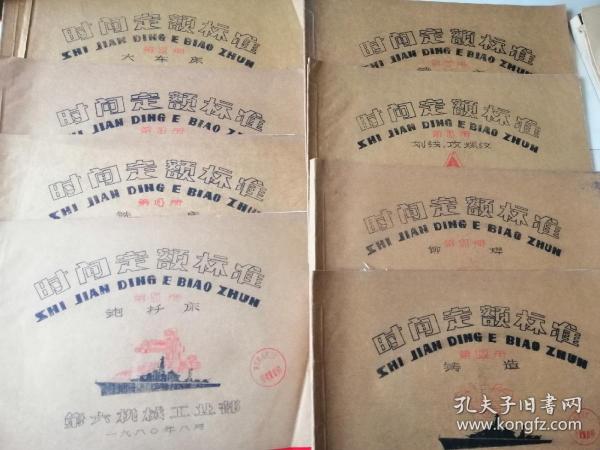 时间定额标准
SHI JIAN DING E BIAO ZHUN
大车床
时间定额标准
SHI JIAN DING E BIAO ZHUN
时间定额标准
SHI JIAN DING E BIAO ZHUN
时间定额标准
SHI JIAN DING E BIAO ZHUN
刨 插 床
第六机械工业部
一九八〇年八月
时间定额标准
SHI JIAN DING E BIAO ZHUN
时间定额标准
SHI JIAN DING E BIAO ZHUN
划线、攻螺纹
时间定额标准
SHI JIAN DING E BIAO ZHUN
铆 焊
时间定额标准
SHI JIAN DING E BIAO ZHUN
铸 造
孔夫子旧书网
www.kongfz.com